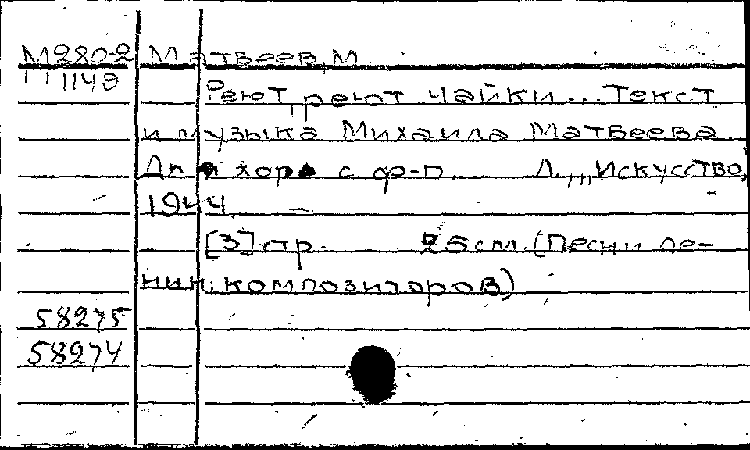 М280-2 Матвеев, М
1149
Реют, реют чайки... Текст
и музыка Михаила Матвеева
Для хора с ф-п. Л., „Искусство,
1944
[3] стр. 26 см. (Песни ле-
нин. композиторов)
58275
58274